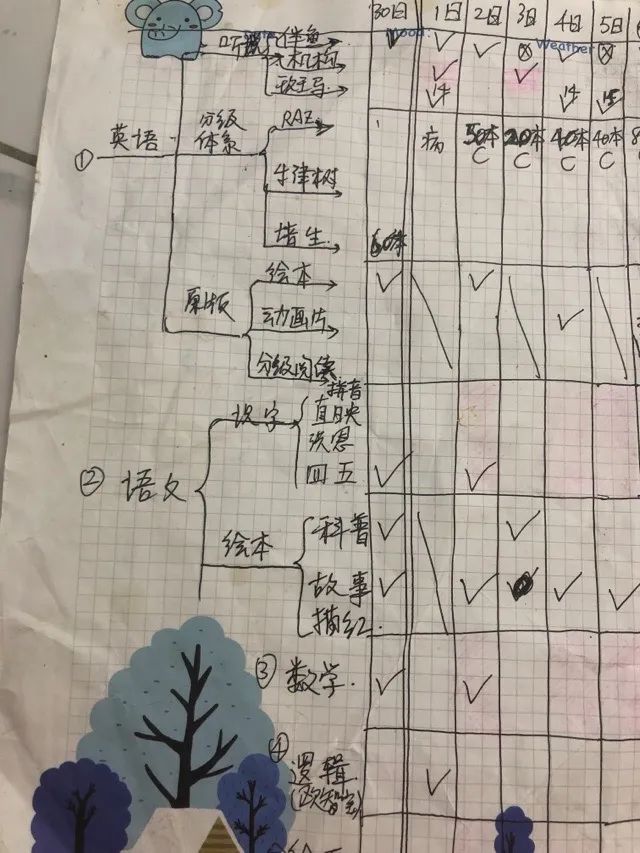 30日 1日 2日 3日 4日 5日
Weather
听说 伴鱼
机构
① 英语
分级体系
RAZ
病 50本 20本 40本 40本
C C C C
牛津树
培生 60本
原版
绘本
动画片
分级阅读
② 语文
识字
拼音
直映
洪恩
四五
绘本
科普
故事
描红
③ 数学
④ 逻辑